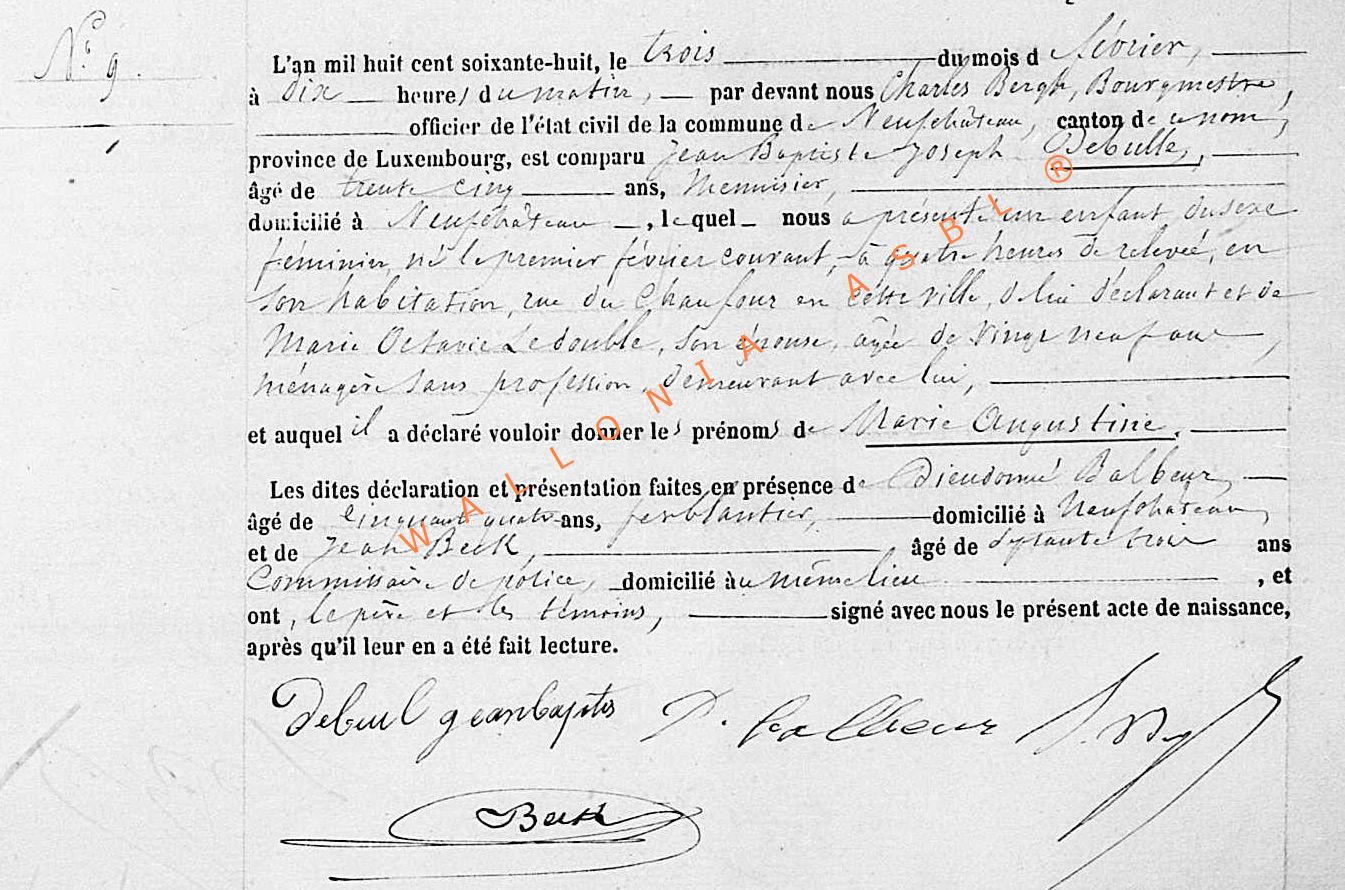 N° 9.
L'an mil huit cent soixante-huit, le trois du mois d février,
à dix heures du matin, par devant nous Charles Bergh, Bourgmestre,
officier de l'état civil de la commune de Neufchâteau, canton de ce nom,
province de Luxembourg, est comparu Jean Baptiste Joseph Debulle,
âgé de trente cinq ans, Menuisier,
domicilié à Neufchâteau, lequel nous a présenté un enfant du sexe
féminin, né le premier février courant, à quatre heures de relevée, en
son habitation, rue du Chaufour en cette ville, de lui déclarant et de
Marie Octavie Ledouble, son épouse, agée de vingt neuf ans,
ménagère sans profession, demeurant avec lui,
et auquel il a déclaré vouloir donner les prénoms de Marie Augustine.
Les dites déclaration et présentation faites en présence de Dieudonné Balbeur,
âgé de cinquante quatre ans, ferblantier, domicilié à Neufchâteau,
et de Jean Beck, âgé de septante trois ans
Commissaire de police, domicilié au même lieu, et
ont, le père et les témoins, signé avec nous le présent acte de naissance,
après qu'il leur en a été fait lecture.
Debeul geanbaptis D. balbeur
Beck
WALLONIA ASBL ®